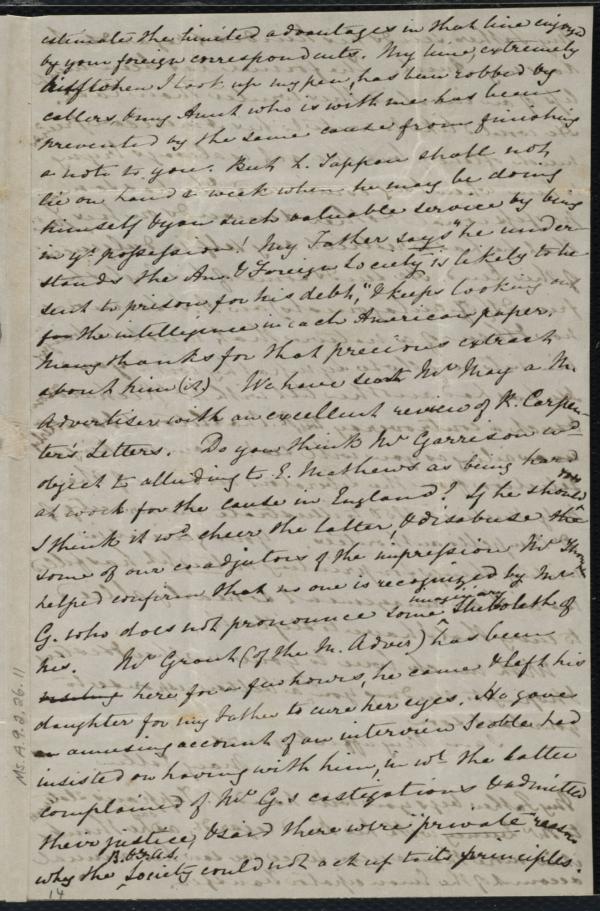 estimate the limited advantages in that line enjoyed
by your foreign correspondents. My time, extremely
when I took up my pen, has been robbed by
callers & my Aunt who is with me has been
prevented by the same cause from finishing
a note to you. But L. Tappan shall not
lie on hand a week when he may be doing
himself & you such valuable service by being
in yr. possession! My Father says "he under-
stands the Am. & Foreign Society is likely to be
sent to prison for his debts," & keeps looking out
for the intelligence in each American paper.
Many thanks for that precious extract
about him (it) We have sent Mr May a M.
Advertiser with an excellent review of R. Carpen-
ter's Letters. Do you think Mr Garrison wd.
object to alluding to E. Mathews as being hard
at work for the cause in England? If he should not
I think it wd. cheer the latter, & disabuse
some of our coadjutors of the impression Mr Thomp
helped confirm that no one is recognized by Mr
G. who does not pronounce some imaginary Shibboleth of
his. Mr Grant (of the M. Adver) has been
here for a few hours, he came & left his
daughter for my Father to cure her eyes. He gave
an amusing account of an interview Scoble had
insisted on having with him, in wh. the latter
complained of Mr G.s castigations & admitted
their justice, & said there were "private reasons
why the B. & F. A.S. Society could not act up to its principles.
Ms.A.9.2.26.11
14